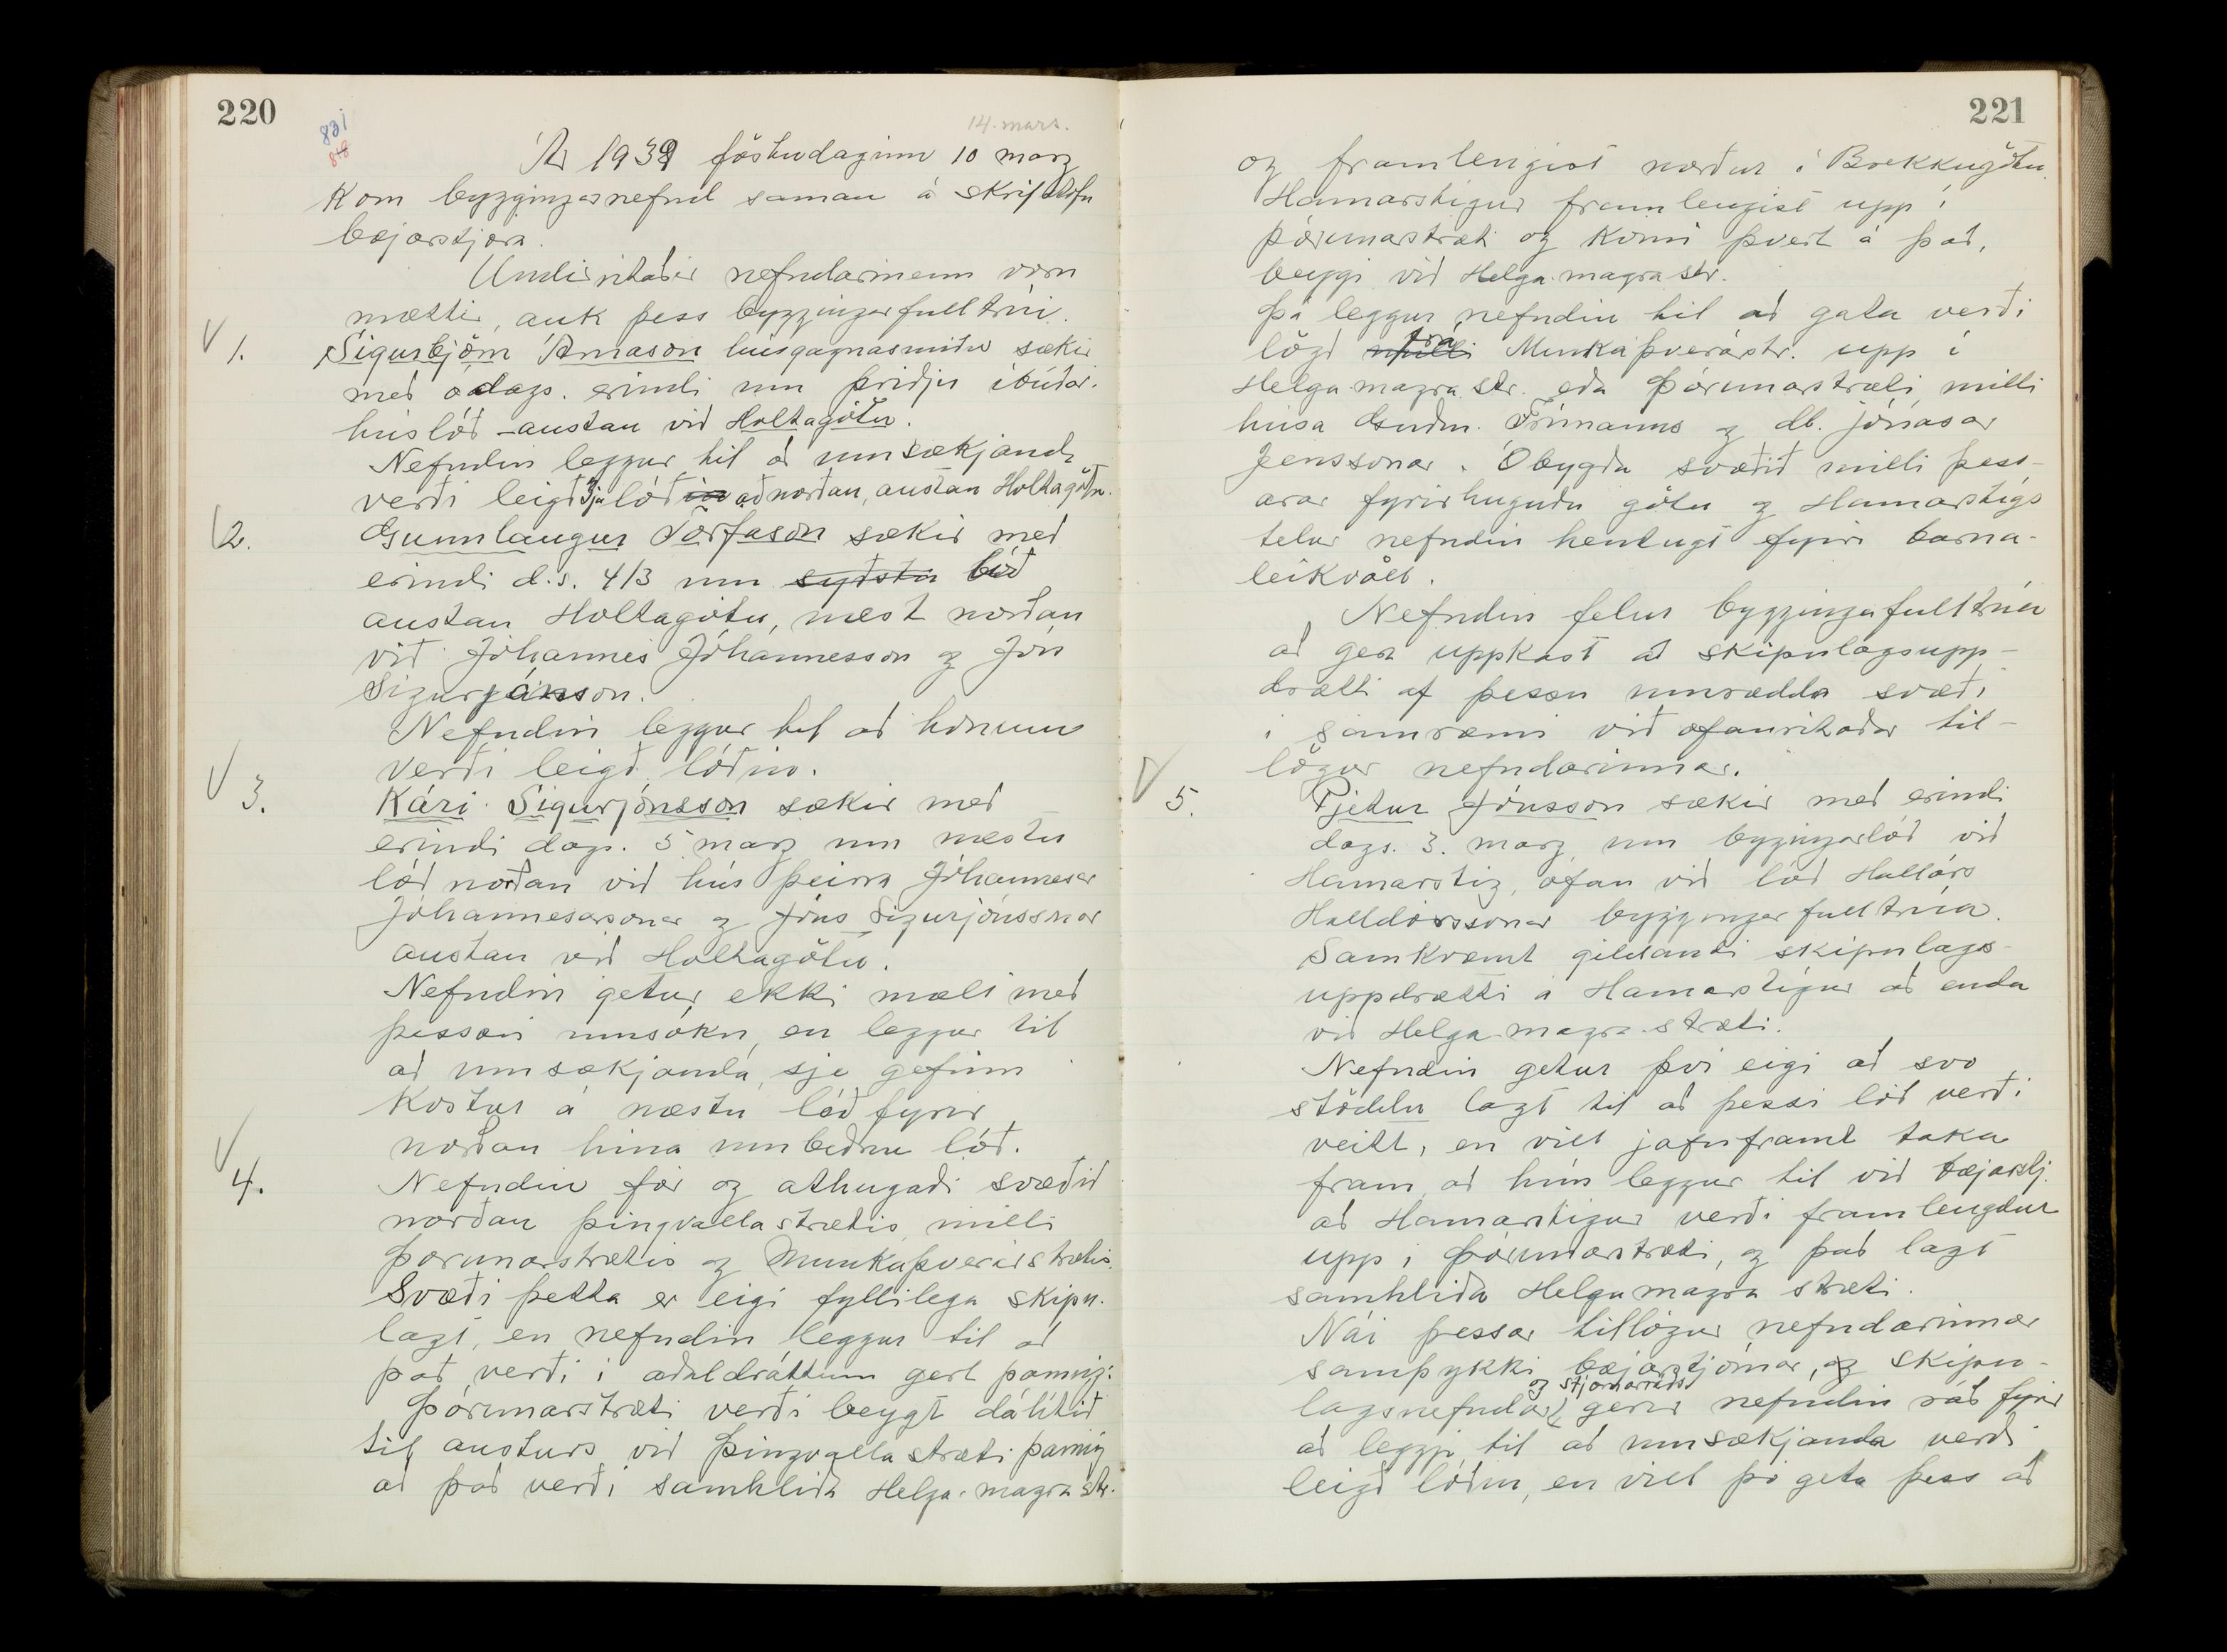 220
831
818
14. mars.
Ár 1939 föstudaginn 10 marz
kom byggingarnefnd saman á skrifstofu
bæjarstjóra.
Undirritaðir nefndarmenn voru
mættir, auk þess byggingarfulltrúi.
V 1. Sigurbjörn Árnason húsgagnasmiður sækir
með ódags. erindi um þriðju íbúðar-
húslóð austan við Holtagötu.
Nefndin leggur til að umsækjanda
verði leigð 3ju lóðin að norðan, austan Holtagötu.
V 2. Gunnlaugur Torfason sækir með
erindi d.s. 4/3 um syðstu lóð
austan Holtagötu, næst norðan
við Jóhannes Jóhannesson og Jón
Sigurjónsson.
Nefndin leggur til að honum
verði leigð lóðin.
V 3. Kári Sigurjónsson sækir með
erindi dags. 5 marz um næstu
lóð norðan við hús þeirra Jóhannesar
Jóhannesarsonar og Jóns Sigurjónssonar
austan við Holtagötu.
Nefndin getur ekki mælt með
þessari umsókn, en leggur til
að umsækjanda sje gefinn
kostur á næstu lóð fyrir
norðan hina umbeðnu lóð.
V 4. Nefndin fór og athugaði svæðið
norðan Þingvallastrætis, milli
Þórunnarstrætis og Munkaþverárstrætis.
Svæði þetta er eigi fyllilega skipu-
lagt, en nefndin leggur til að
það verði í aðaldráttum gert þannig:
Þórunnarstræti verði beygt dálítið
til austurs við Þingvallastræti þannig
að það verði samhliða Helga-magra str.
221
og framlengist norður í Brekkugötu.
Hamarstígur framlengist upp í
Þórunnarstræti og komi þvert á það,
beygi við Helga-magra str.
Þá leggur nefndin til að gata verði
lögð milli frá Munkaþverárstr. upp í
Helga-magra str. eða Þórunnarstræti milli
húsa Guðm. Frímanns og db. Jónasar
Jenssonar. Óbygða svæðið milli þess-
arar fyrirhuguðu götu og Hamarstígs
telur nefndin hentugt fyrir barna-
leikvöll.
Nefndin felur byggingafulltrúa
að gera uppkast að skipulagsupp-
drætti af þessu umrædda svæði
í samræmi við ofanritaðar til-
lögur nefndarinnar.
V 5. Pjetur Jónsson sækir með erindi
dags. 3. marz um byggingarlóð við
Hamarstíg, ofan við lóð Halldórs
Halldórssonar byggingarfulltrúa.
Samkvæmt gildandi skipulags-
uppdrætti á Hamarstígur að enda
við Helga-magra-stræti.
Nefndin getur því eigi að svo
stöddu lagt til að þessi lóð verði
veitt, en vill jafnframt taka
fram að hún leggur til við bæjarstj.
að Hamarstígur verði framlengdur
upp í Þórunnarstræti, og það lagt
samhliða Helgamagra stræti.
Nái þessar tillögur nefndarinnar
samþykki bæjarstjórnar, og skipu-
lagsnefndar og stjórnarráðs gerir nefndin ráð fyrir
að leggja til að umsækjanda verði
leigð lóðin, en vill þó geta þess að